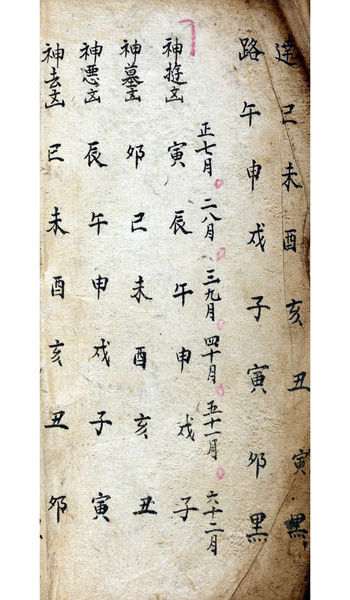 達巳未酉亥丑寅黑
路午申戌子寅卯黑
正七月 二八月 三九月 四十月 五十一月 六十二月
神寅辰午申戌子
神墓卯巳未酉亥丑
神悪辰午申戌子寅
神去巳未酉亥丑卯